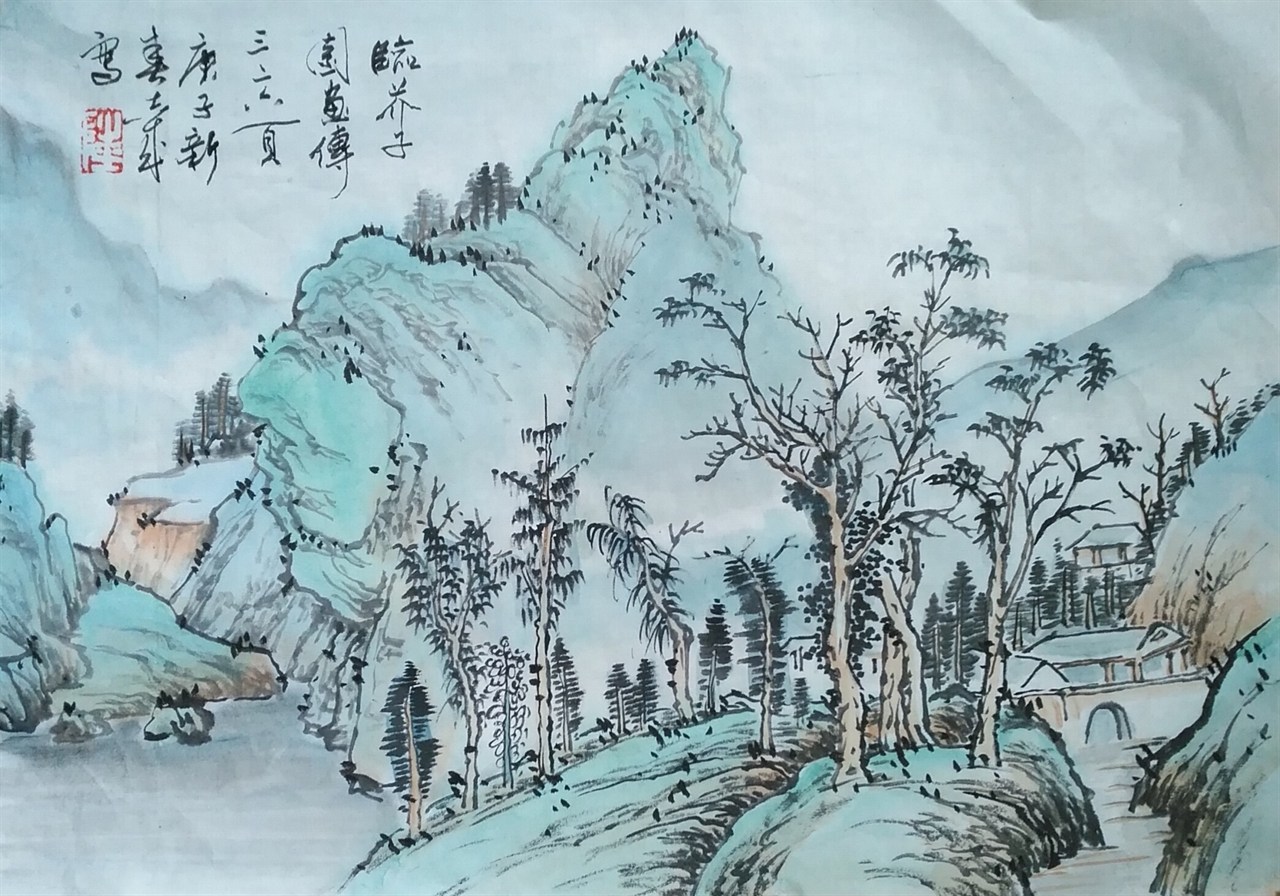 臨芥子
園畫傳
三二六頁
庚子新
春士成
寫